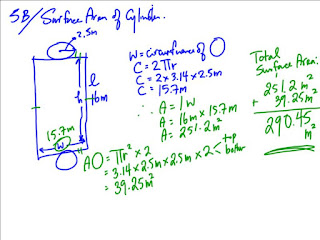 5B/ Surface Area of Cylinder.
2.5m
W = Circumference of
C = 2πr
C = 2 × 3.14 × 2.5m
C = 15.7m
∴ A = l w
A = 16m × 15.7m
A = 251.2 m²
l
h
16m
15.7m
W
A = πr² × 2
= 3.14 × 2.5m × 2.5m × 2 < top bottom
= 39.25m²
Total
Surface Area:
251.2 m²
+ 39.25m²
290.45 m²